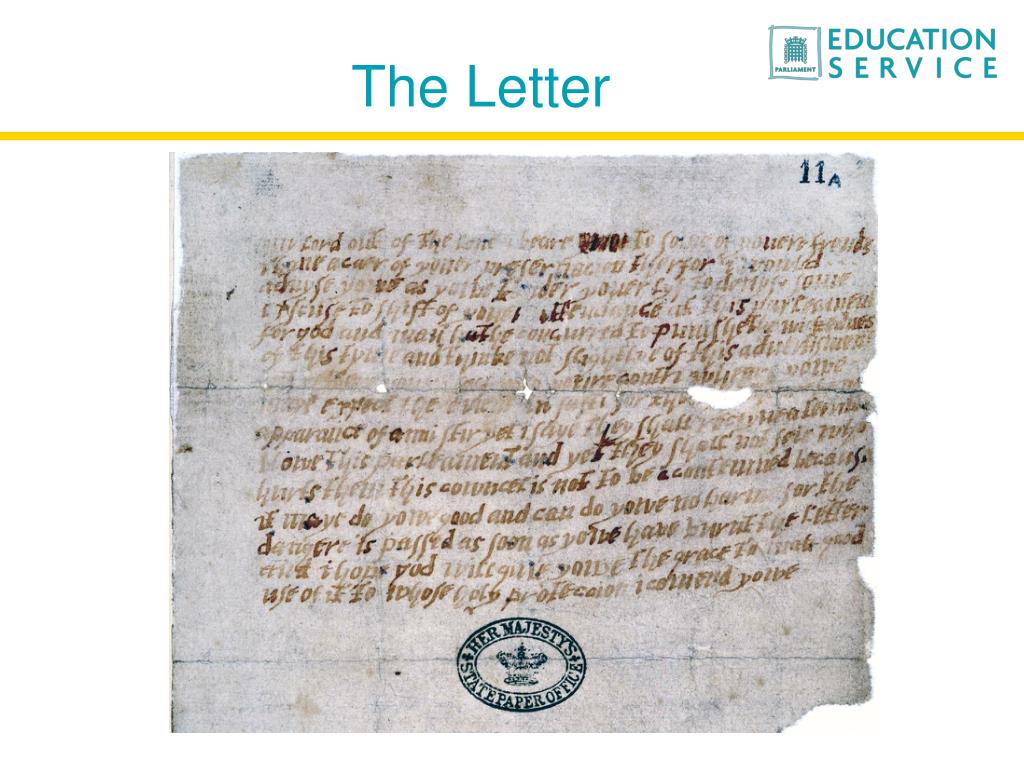 EDUCATION
SERVICE
PARLIAMENT
The Letter
11A
lord out of the beare to some of youere frends
a caer of youer preservacion therfor i would
advyse yowe as yowe tender youer lyf to devys some
excuse to shift of youer attendance at this parleament
for god and man hathe concurred to punishe the wickednes
of this tyme and thinke not slightlye of this advertisment
youre contri wheare yowe
maye expect the event in safti for
apparance of anni stir yet i saye they shall receyve a terrible
blowe this parleament and yet they shall not seie who
hurts them this cowncel is not to be contemned because
it maye do yowe good and can do yowe no harme for the
dangere is passed as soon as yowe have burnt the letter
and i hope god will give yowe the grace to mak good
use of it to whose holy proteccion i comend yowe
HER MAJESTY'S
STATE PAPER OFFICE